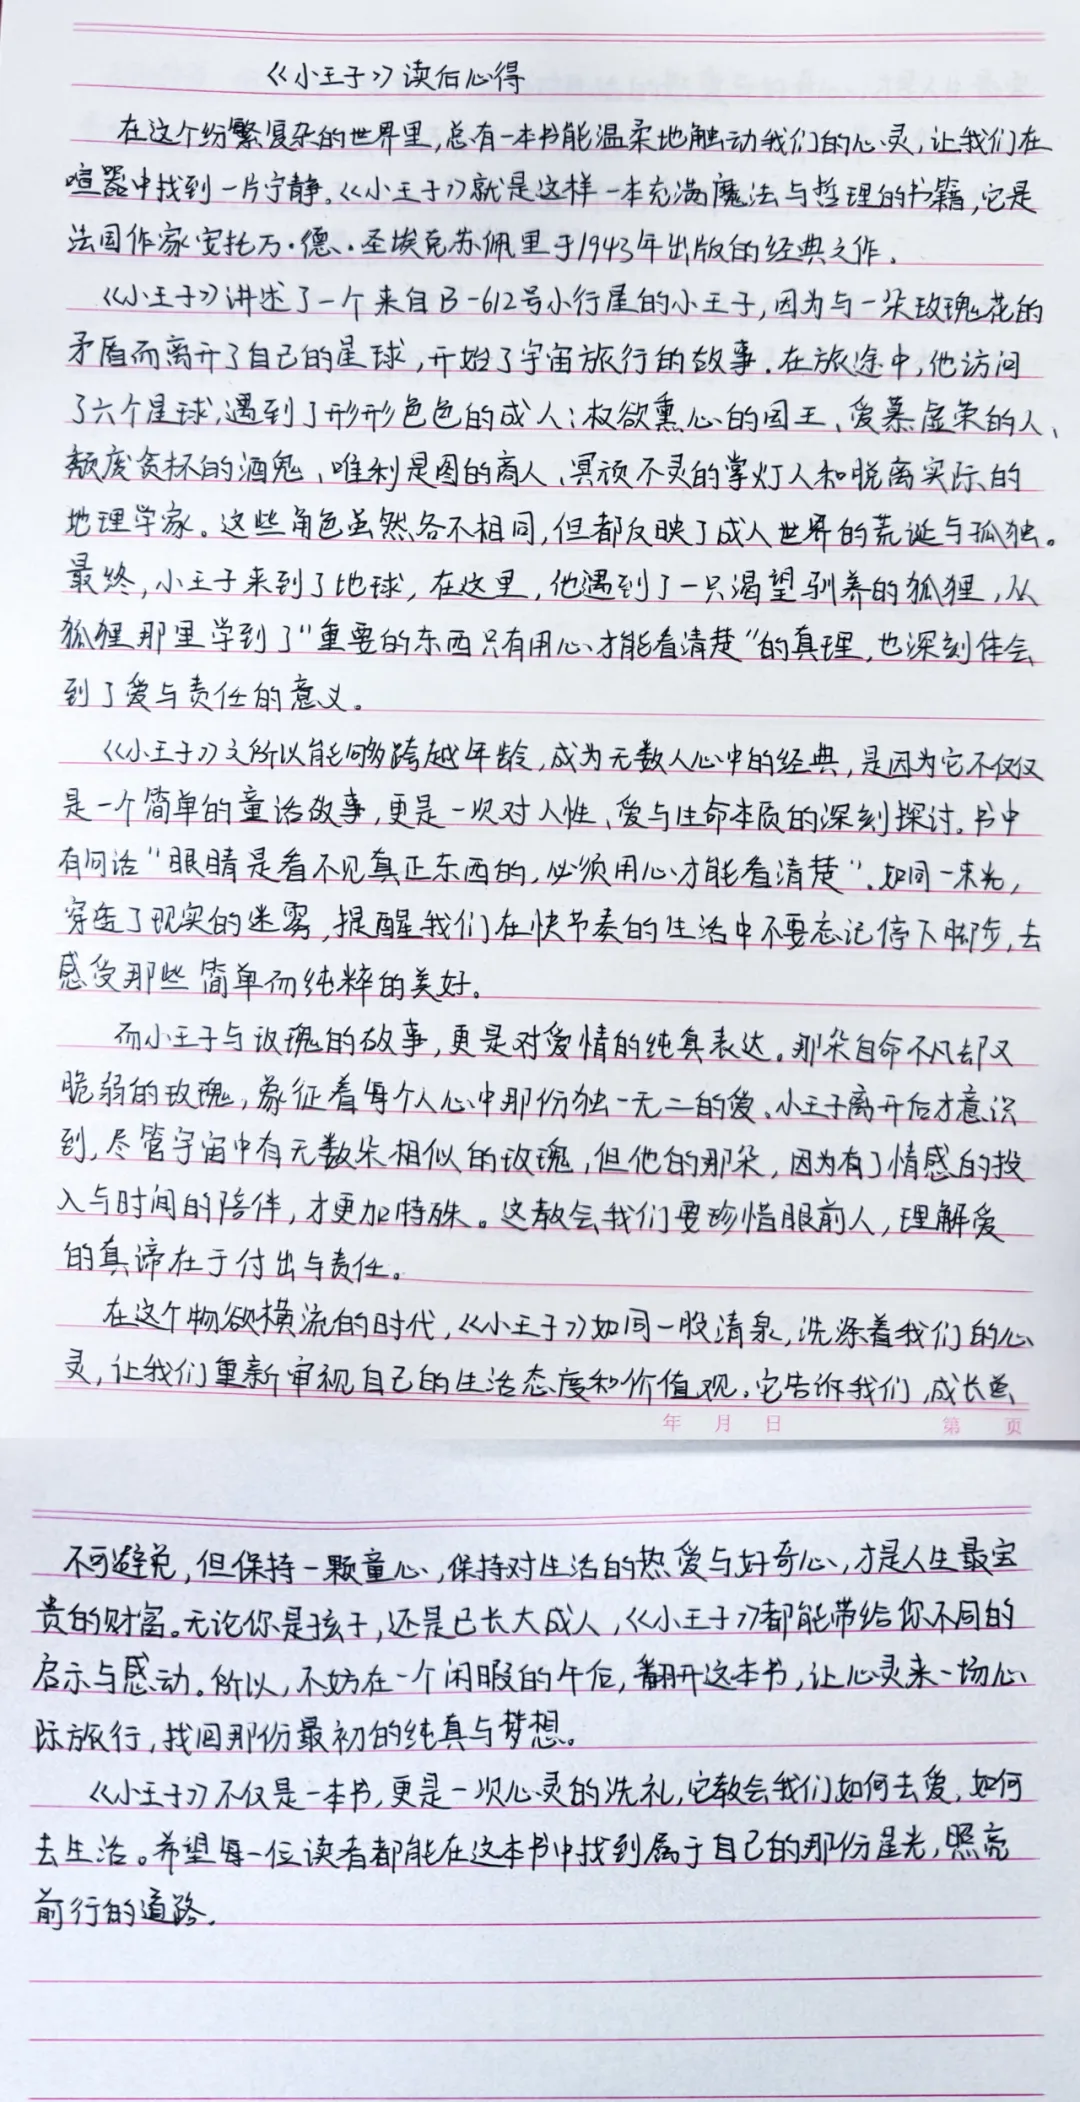 《小王子》读后心得
在这个纷繁复杂的世界里,总有一本书能温柔地触动我们的心灵,让我们在
喧嚣中找到一片宁静。《小王子》就是这样一本充满魔法与哲理的书籍,它是
法国作家安托万·德·圣埃克苏佩里于1943年出版的经典之作.
《小王子》讲述了一个来自B-612号小行星的小王子,因为与一朵玫瑰花的
矛盾而离开了自己的星球,开始了宇宙旅行的故事.在旅途中,他访问
了六个星球,遇到了形形色色的成人:权欲熏心的国王、爱慕虚荣的人、
颓废贪杯的酒鬼、唯利是图的商人、冥顽不灵的掌灯人和脱离实际的
地理学家。这些角色虽然各不相同,但都反映了成人世界的荒诞与孤独。
最终,小王子来到了地球,在这里,他遇到了一只渴望驯养的狐狸,从
狐狸那里学到了"重要的东西只有用心才能看清楚"的真理,也深刻体会
到了爱与责任的意义。
《小王子》之所以能够跨越年龄,成为无数人心中的经典,是因为它不仅仅
是一个简单的童话故事,更是一次对人性、爱与生命本质的深刻探讨.书中
有句话"眼睛是看不见真正东西的,必须用心才能看清楚".如同一束光,
穿透了现实的迷雾,提醒我们在快节奏的生活中不要忘记停下脚步,去
感受那些简单而纯粹的美好。
而小王子与玫瑰的故事,更是对爱情的纯真表达。那朵自命不凡却又
脆弱的玫瑰,象征着每个人心中那份独一无二的爱.小王子离开后才意识
到,尽管宇宙中有无数朵相似的玫瑰,但他的那朵,因为有了情感的投
入与时间的陪伴,才更加特殊。这教会我们要珍惜眼前人,理解爱
的真谛在于付出与责任。
在这个物欲横流的时代,《小王子》如同一股清泉,洗涤着我们的心
灵,让我们重新审视自己的生活态度和价值观。它告诉我们,成长虽
年 月 日 第 页
不可避免,但保持一颗童心,保持对生活的热爱与好奇心,才是人生最宝
贵的财富。无论你是孩子,还是已长大成人,《小王子》都能带给你不同的
启示与感动。所以,不妨在一个闲暇的午后,翻开这本书,让心灵来一场心
际旅行,找回那份最初的纯真与梦想。
《小王子》不仅是一本书,更是一次心灵的洗礼,它教会我们如何去爱,如何
去生活。希望每一位读者都能在这本书中找到属于自己的那份星光,照亮
前行的道路.